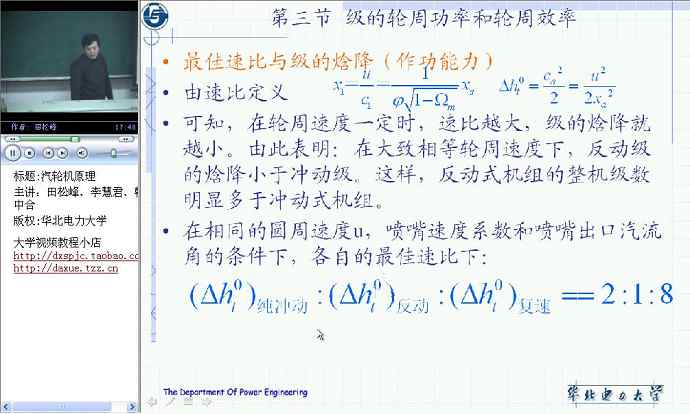 第三节 级的轮周功率和轮周效率
• 最佳速比与级的焓降（作功能力）
• 由速比定义 x₁ = u/c₁ = 1/(φ√(1-Ωₘ)) xₐ Δhₜ⁰ = cₐ²/2 = u²/(2xₐ²)
• 可知，在轮周速度一定时，速比越大，级的焓降就
越小。由此表明：在大致相等轮周速度下，反动级
的焓降小于冲动级。这样，反动式机组的整机级数
明显多于冲动式机组。
• 在相同的圆周速度u，喷嘴速度系数和喷嘴出口汽流
角的条件下，各自的最佳速比下：
(Δhₜ⁰)纯冲动 : (Δhₜ⁰)反动 : (Δhₜ⁰)复速 == 2:1:8
The Department Of Power Engineering
华北电力大学
作者: 田松峰 17:48
标题:汽轮机原理
主讲: 田松峰、李慧君、
中合
版权:华北电力大学
大学视频教程小店
http://dxspjc.taobao.co
http://daxue.tzz.cn